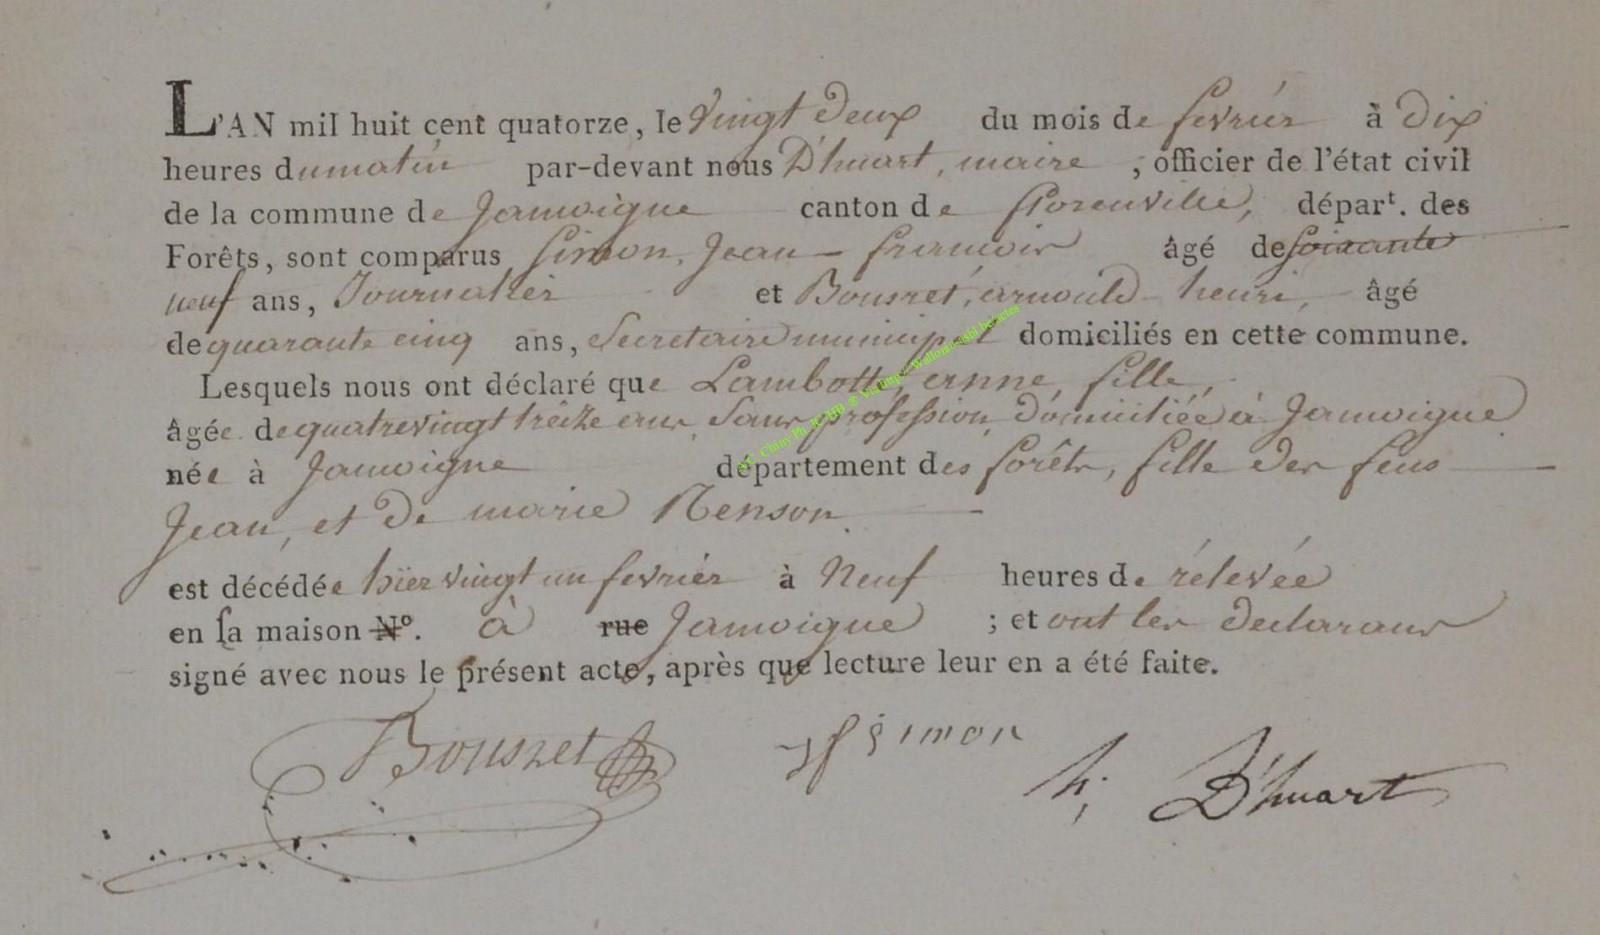 L'AN mil huit cent quatorze, le vingt deux du mois de fevrier à dix
heures du matin par-devant nous D'huart, maire, officier de l'état civil
de la commune de Jamoigne canton de florenville, départ. des
Forêts, sont comparus Simon, Jean-francois âgé de soixante
neuf ans, Journalier et Bousret, arnould-henri, âgé
de quarante cinq ans, Secretaire municipal domiciliés en cette commune.
Lesquels nous ont déclaré que Lambotte, anne, fille,
âgée de quatrevingt treize ans, Sans profession, domiciliée à Jamoigne
née à Jamoigne département des forêts, fille des feus
Jean, et de marie Renson.
est décédée hier vingt un fevrier à Neuf heures de rélevée
en sa maison N°. à rue Jamoigne ; et ont les declarans
signé avec nous le présent acte, après que lecture leur en a été faite.
Bousret jf Simon h; D'huart